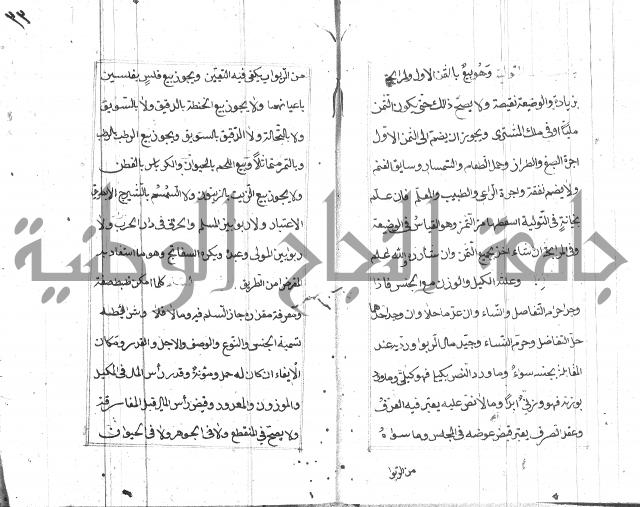 التولية وهو بيع بالثمن الاول والمرابحة
بزيادة والوضيعة نقيصة ولا يصح ذلك حتى يكون الثمن
مثليا او في ملك المشترى ويجوز ان يضم الى الثمن الاول
اجرة الصبغ والطراز وحمل الطعام والسمسار وسايق الغنم
ولا يضم نفقة واجرة الراعى والطبيب والمعلم فان علم
بخيانة في التولية اسقطها من الثمن وهو القياس في الوضيعة
وفي المرابحة ان شاء اخذ بجميع الثمن وان شاء رد
وعلته الكيل والوزن مع الجنس فاذا
وجدا حرم التفاضل والنساء وان عدما حلا وان وجد احدهما
حل التفاضل وحرم النساء وجيد مال الربوا ورديه عند
المقابلة بجنسه سواء وما ورد النص بكيله فهو كيلي وما ورد
بوزنه فهو وزني ابدا وما لا نص عليه يعتبر فيه العرف
وعقد الصرف يعتبر قبض عوضه في المجلس وما سواه
من الربوا
٢٣
من الربوات يكفي فيه التعيين ويجوز بيع فلس بفلسين
باعيانهما ولا يجوز بيع الحنطة بالدقيق ولا بالسويق
ولا بالنخالة ولا الدقيق بالسويق ويجوز بيع الرطب بالرطب
وبالتمر متماثلا وبيع اللحم بالحيوان والكرباس بالقطن
ولا يجوز بيع الزيت بالزيتون ولا السمسم بالشيرج الا بطريق
الاعتبار ولا ربو بين المسلم والحربى في دار الحرب ولا
ربو بين المولى وعبده ويكره السفاتج وهو ما استفاد به
المقرض امن الطريق كلما امكن ضبط صفته
ومعرفة مقداره جاز السلم فيه وما لا فلا وشرائطه
تسمية الجنس والنوع والوصف والاجل والقدر ومكان
الايفاء ان كان له حمل ومؤنة وقدر رأس المال في المكيل
والموزون والمعدود وقبض رأس المال قبل المفارقة
ولا يصح في المنقطع ولا في الجوهر ولا في الحيوان
جامعة النجاح الوطنية